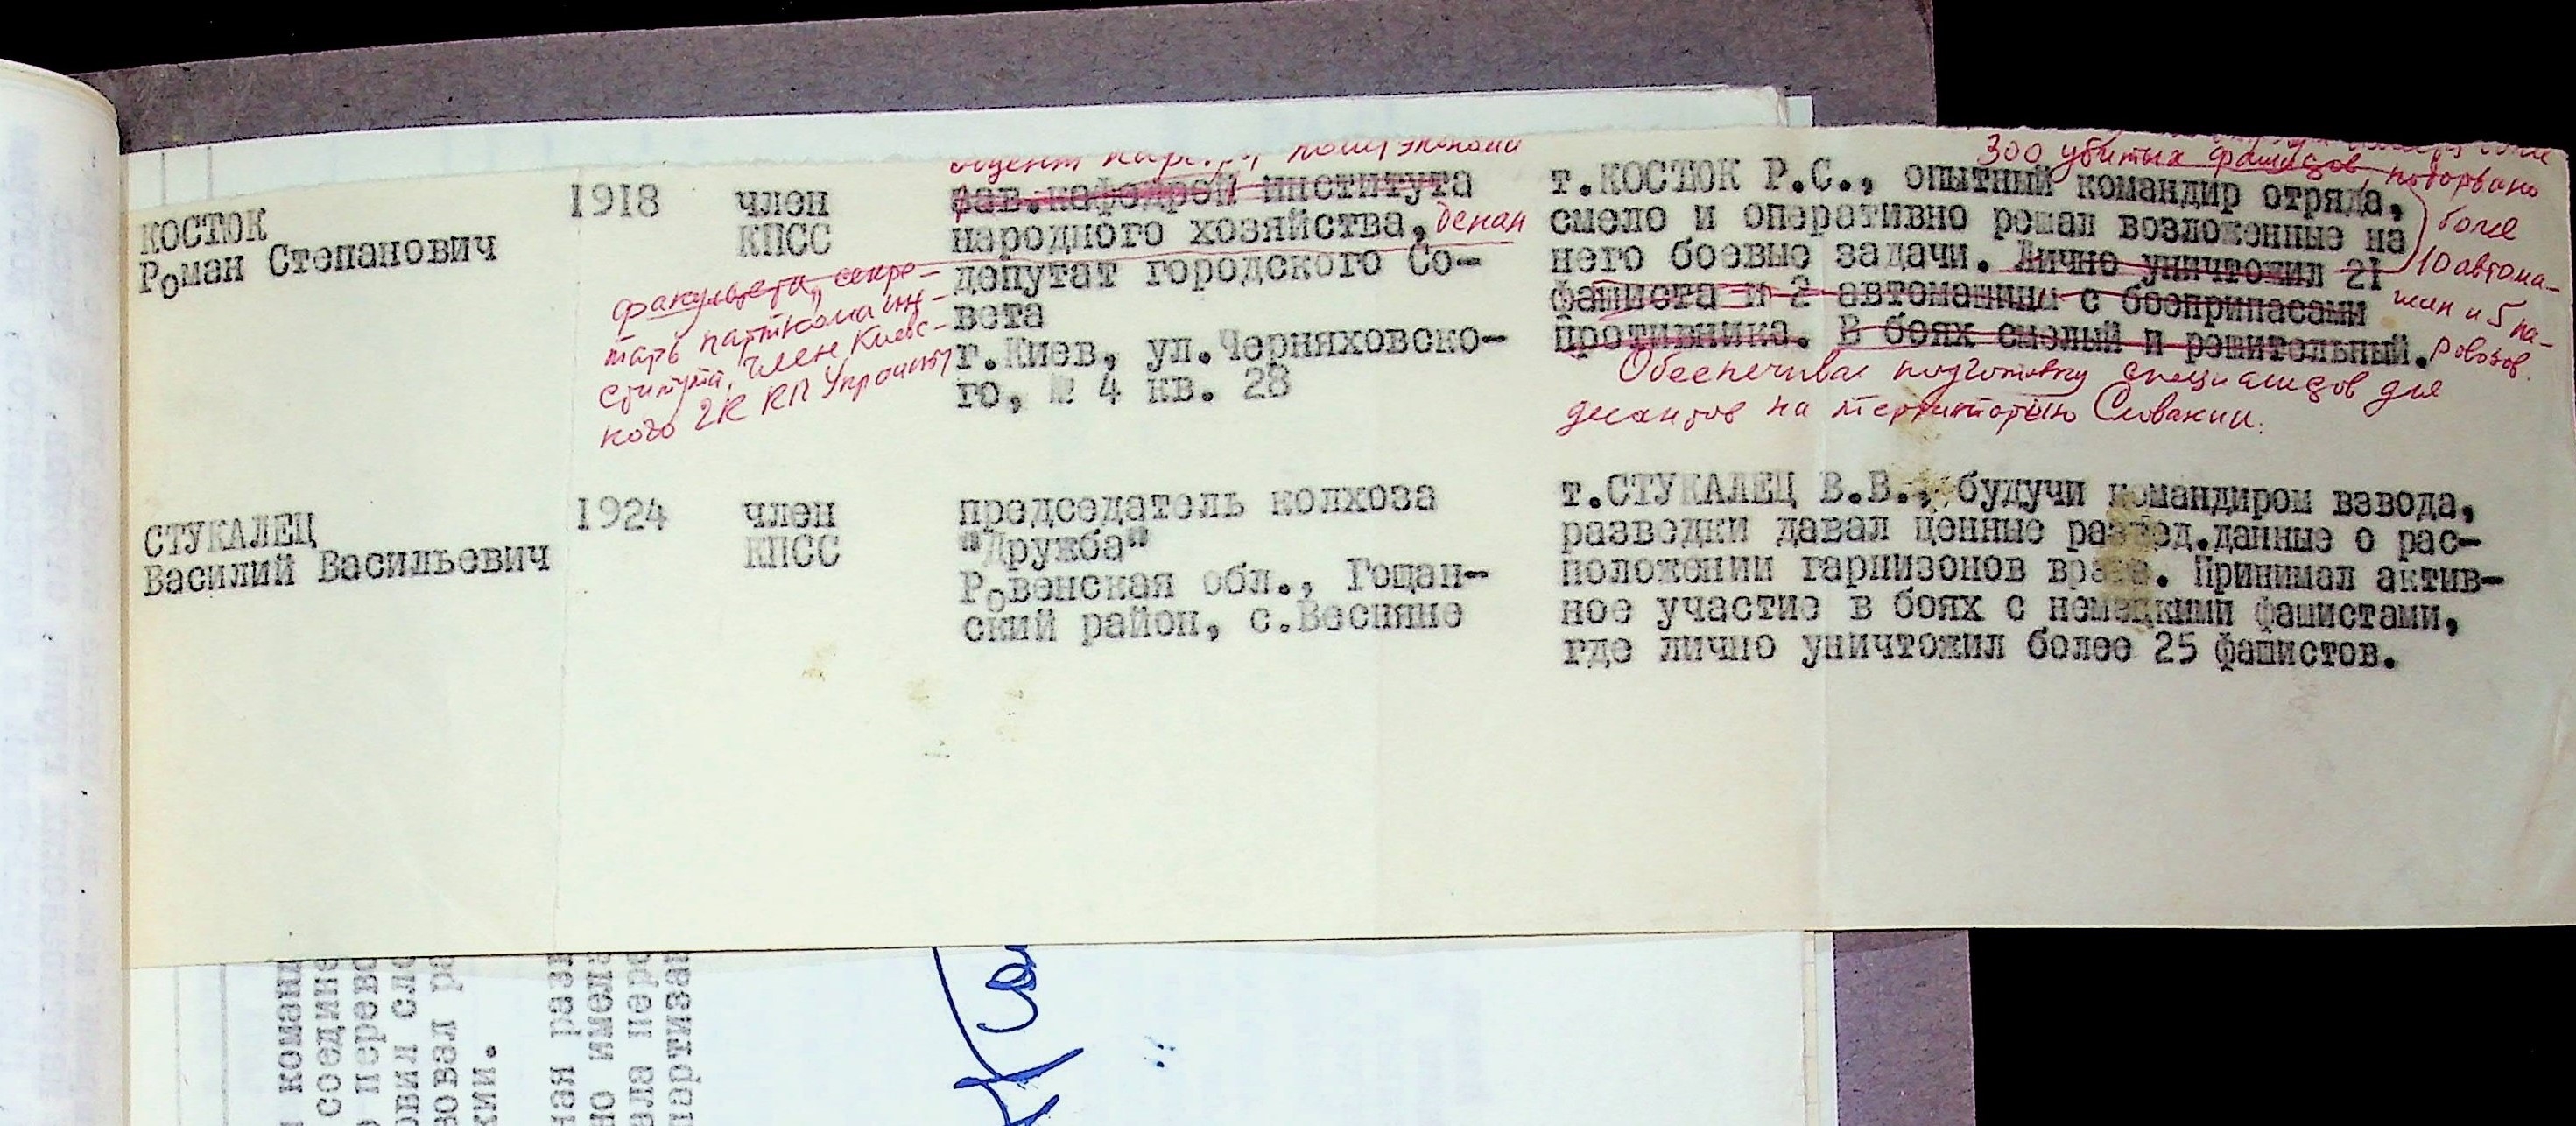 300 убитых фашистов, подорвано
более
10 автома-
шин и 5 па-
ровозов.
КОСТЮК
Роман Степанович
1918
член
КПСС
зав.кафедрой института
народного хозяйства, декан
факультета, секре-
тарь парткома ин-
ститута, член Киевс-
кого ГК КП Украины
депутат городского Со-
вета
г.Киев, ул.Черняховско-
го, № 4 кв. 28
т.КОСТЮК Р.С., опытный командир отряда,
смело и оперативно решал возложенные на
него боевые задачи. Лично уничтожил 21
фашиста и 2 автомашины с боеприпасами
противника. В боях смелый и решительный.
Обеспечивал подготовку специалистов для
десантов на территорию Словакии.
СТУКАЛЕЦ
Василий Васильевич
1924
член
КПСС
председатель колхоза
"Дружба"
Ровенская обл., Гощан-
ский район, с.Весняне
т.СТУКАЛЕЦ В.В., будучи командиром взвода,
разведки давал ценные развед.данные о рас-
положении гарнизонов врага. Принимал актив-
ное участие в боях с немецкими фашистами,
где лично уничтожил более 25 фашистов.